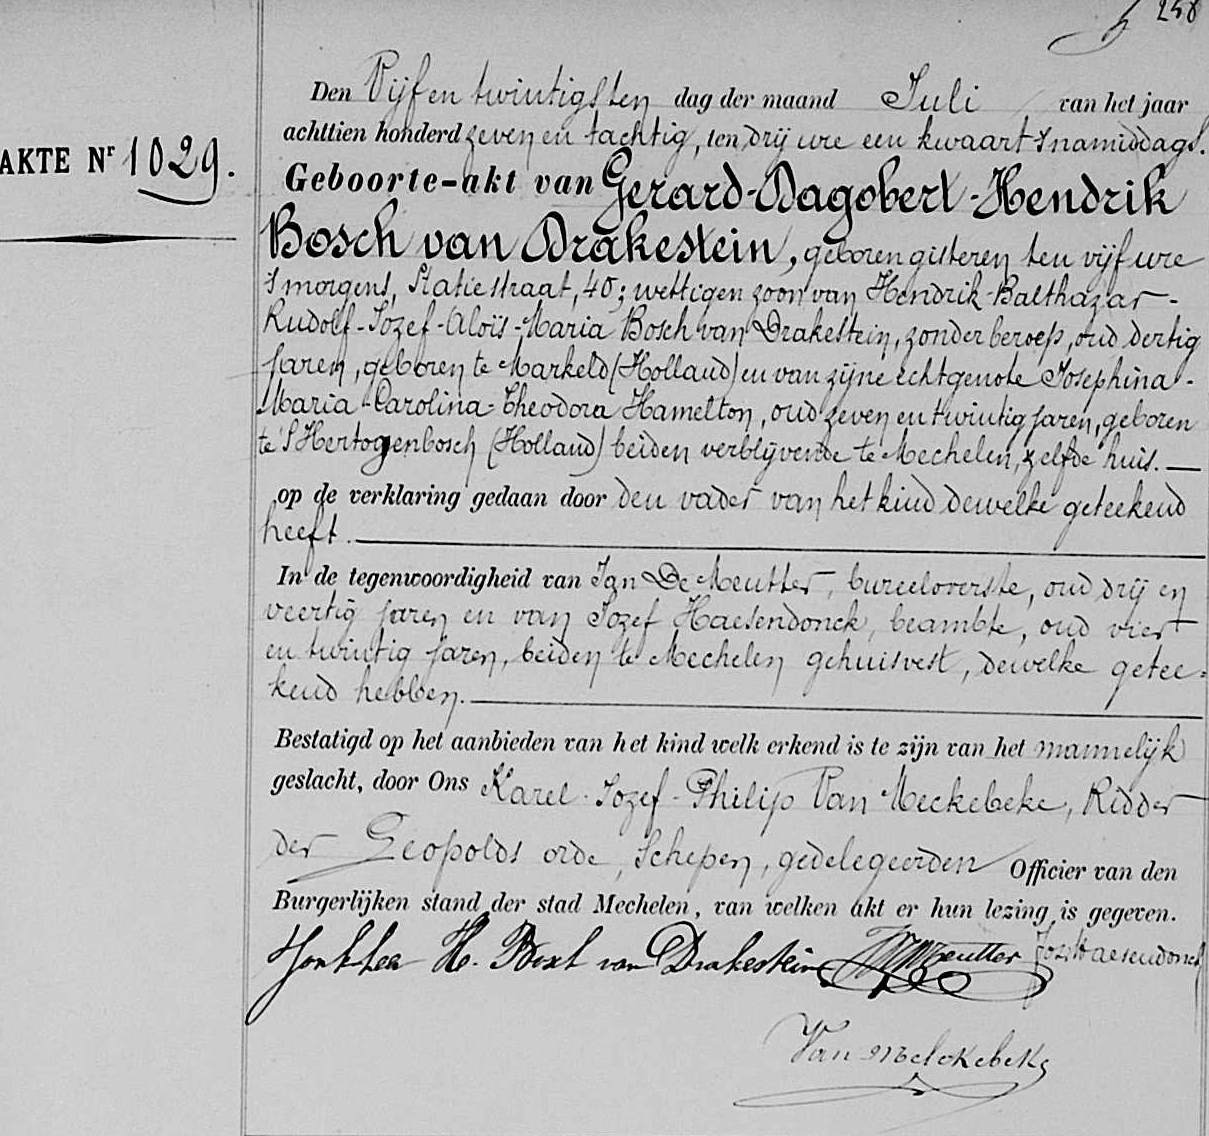 258
Den Vijf en twintigsten dag der maand Juli van het jaar
achttien honderd zeven en tachtig, ten drij ure een kwaart 's namiddags.
AKTE Nr 1029.
Geboorte-akt van Gerard-Dagobert-Hendrik
Bosch van Drakestein, geboren gisteren ten vijf ure
's morgens, Statiestraat, 40; wettigen zoon van Hendrik-Balthazar-
Rudolf-Jozef-Aloïs-Maria Bosch van Drakestein, zonder beroep, oud dertig
jaren, geboren te Markeld (Holland) en van zijne echtgenote Josephina-
Maria-Carolina-Theodora Hamelton, oud zeven en twintig jaren, geboren
te 'S Hertogenbosch (Holland) beiden verblijvende te Mechelen, zelfde huis.
op de verklaring gedaan door den vader van het kind dewelke geteekend
heeft.
In de tegenwoordigheid van Jan De Meutter, bureeloverste, oud drij en
veertig jaren en van Jozef Haesendonck, beambte, oud vier
en twintig jaren, beiden te Mechelen gehuisvest, dewelke getee-
kend hebben.
Bestatigd op het aanbieden van het kind welk erkend is te zijn van het mannelijk
geslacht, door Ons Karel-Jozef-Philip Van Meckebeke, Ridder
der Leopolds orde, Schepen, gedelegeerden Officier van den
Burgerlijken stand der stad Mechelen, van welken akt er hun lezing is gegeven.
Jonkheer H. Bosch van Drakestein DeMeutter Joz Haesendonck
Van Melckebeke